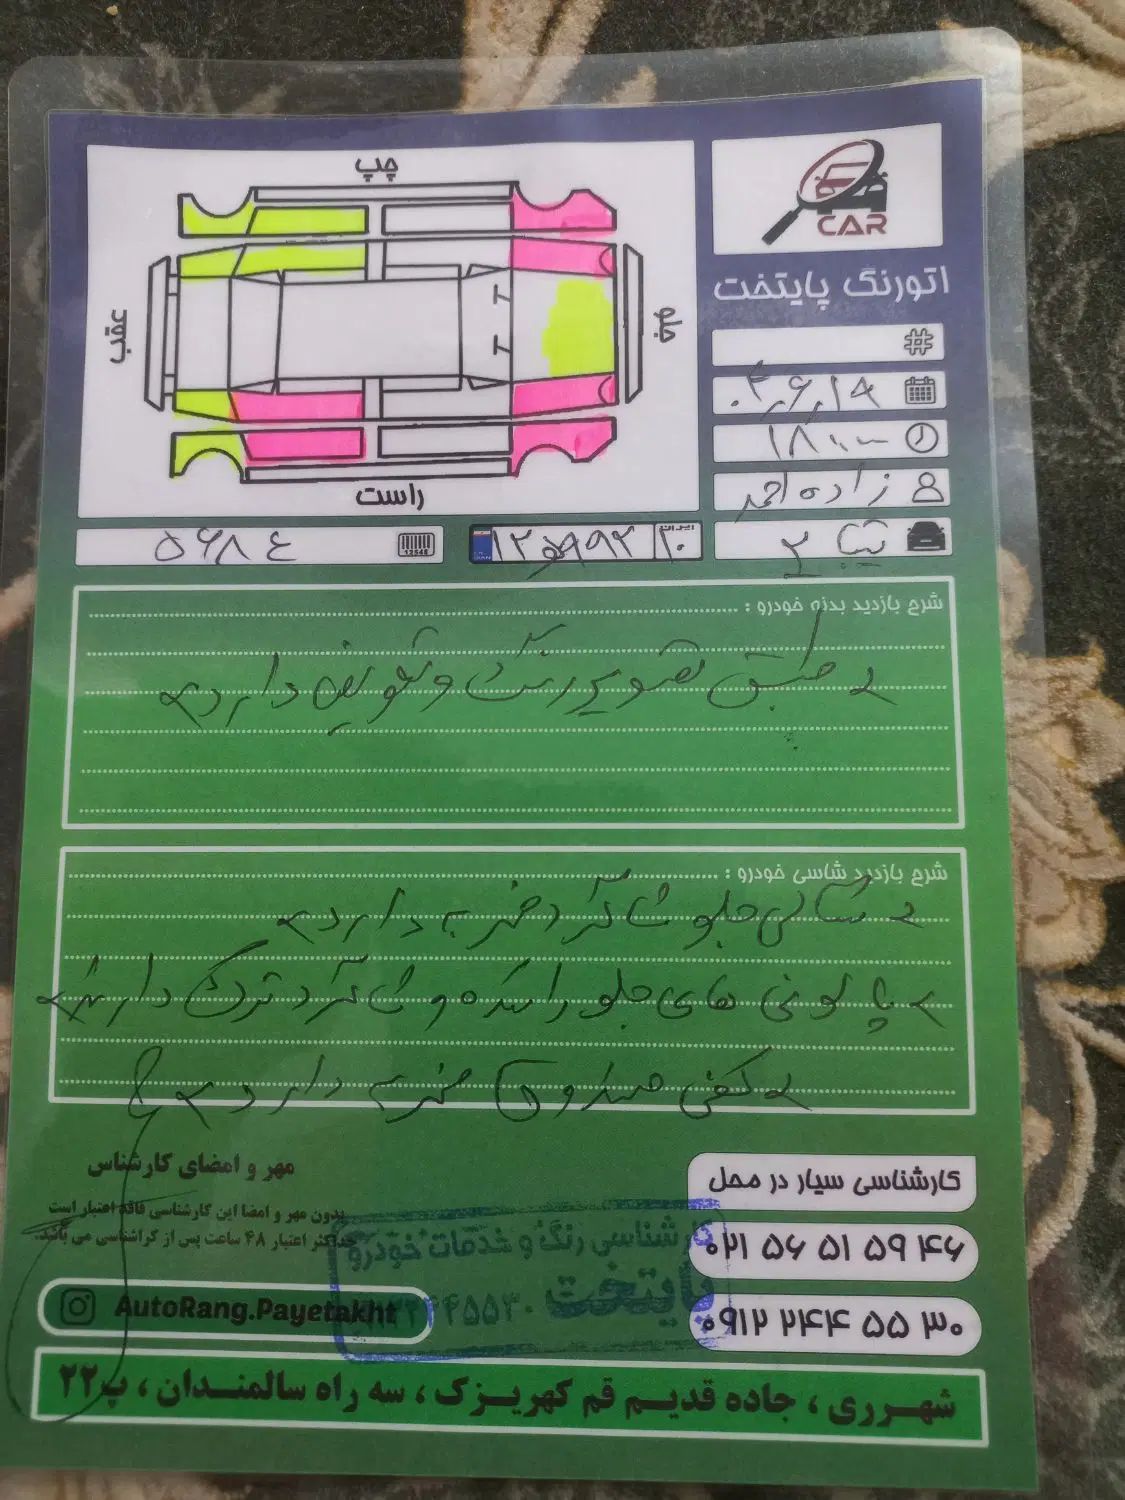 چپ
عقب
جلو
راست
CAR
اتورنگ پایتخت
۰۴,۶,۱۹
۱۸:۰۰
زاده احمد
تیبا ۲
ایران
۲۰
۵۶۸۴
12345
شرح بازدید بدنه خودرو :
طبق تصویر رنگ و تعویض دارد
شرح بازدید شاسی خودرو :
شاسی جلو شاگرد ضربه دارد
پالونی های جلو راننده و شاگرد ترک دارند
کفی صندوق ضربه دارد
مهر و امضای کارشناس
بدون مهر و امضا این کارشناسی فاقد اعتبار است
حداکثر اعتبار ۴۸ ساعت پس از کارشناسی می باشد.
کارشناسی سیار در محل
۰۲۱ ۵۶ ۵۱ ۵۹ ۴۶
۰۹۱۲ ۲۴۴ ۵۵ ۳۰
کارشناسی رنگ و خدمات خودرو
پایتخت
AutoRang.Payetakht
شهرری ، جاده قدیم قم کهریزک ، سه راه سالمندان ، پ۲۲